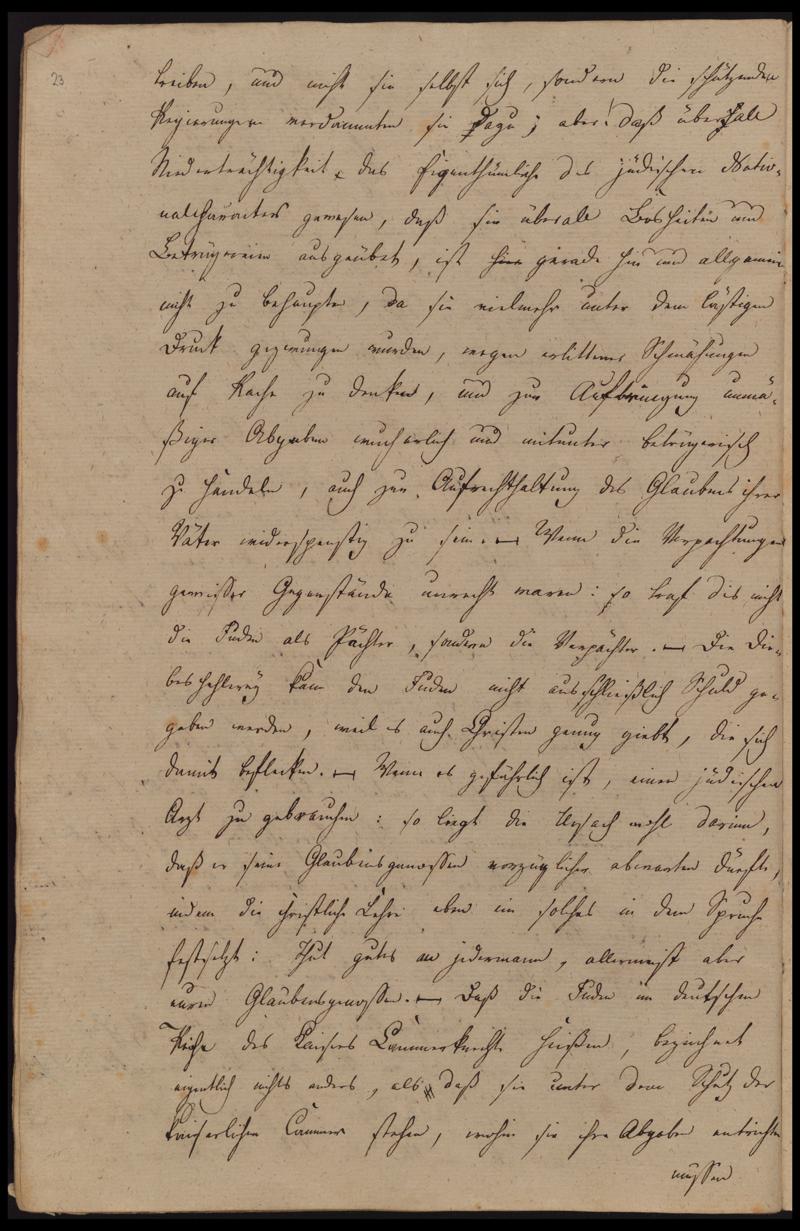 23
treiben, und nicht sie selbst sich, sondern die schützenden
Regierungen verdammten sie dazu; aber daß überale
Niederträchtigkeit das Eigenthümliche des jüdischen Natio-
nalcharacters gewesen, daß sie überall Bosheiten und
Betrügereien ausgeübet, ist gerade hin und allgemein
nicht zu behaupten, da sie vielmehr unter dem lästigen
Druck gezwungen wurden, wegen erlittener Schmähungen
auf Rache zu denken, und zur Aufbringung unmä-
ßiger Abgaben wucherlich und mitunter betrügerisch
zu handeln, auch zur Aufrechthaltung des Glaubens ihrer
Väter widerspenstig zu sein. — Wenn die Verpachtungen
gewisser Gegenstände unrecht waren: so traf dis nicht
die Juden als Pächter, sondern die Verpächter. — Die Die-
beshehlerey kann den Juden nicht ausschließlich Schuld ge-
geben werden, weil es auch Christen genug giebt, die sich
damit beflecken. — Wenn es gefährlich ist, einen jüdischen
Arzt zu gebrauchen: so liegt die Ursach wohl darinn,
daß er seine Glaubensgenossen vorzüglicher abwarten dürfte,
indem die christliche Lehre eben ein solches in dem Spruche
festsetzt: Thut gutes an jedermann, allermeist aber
euren Glaubensgenossen. — Daß die Juden im deutschen
Reiche des Kaisers Cammerknechte hießen, bezeichnet
eigentlich nichts anders, als daß sie unter dem Schutz der
kaiserlichen Cammer stehen, wohin sie ihre Abgaben entrichten
mussen